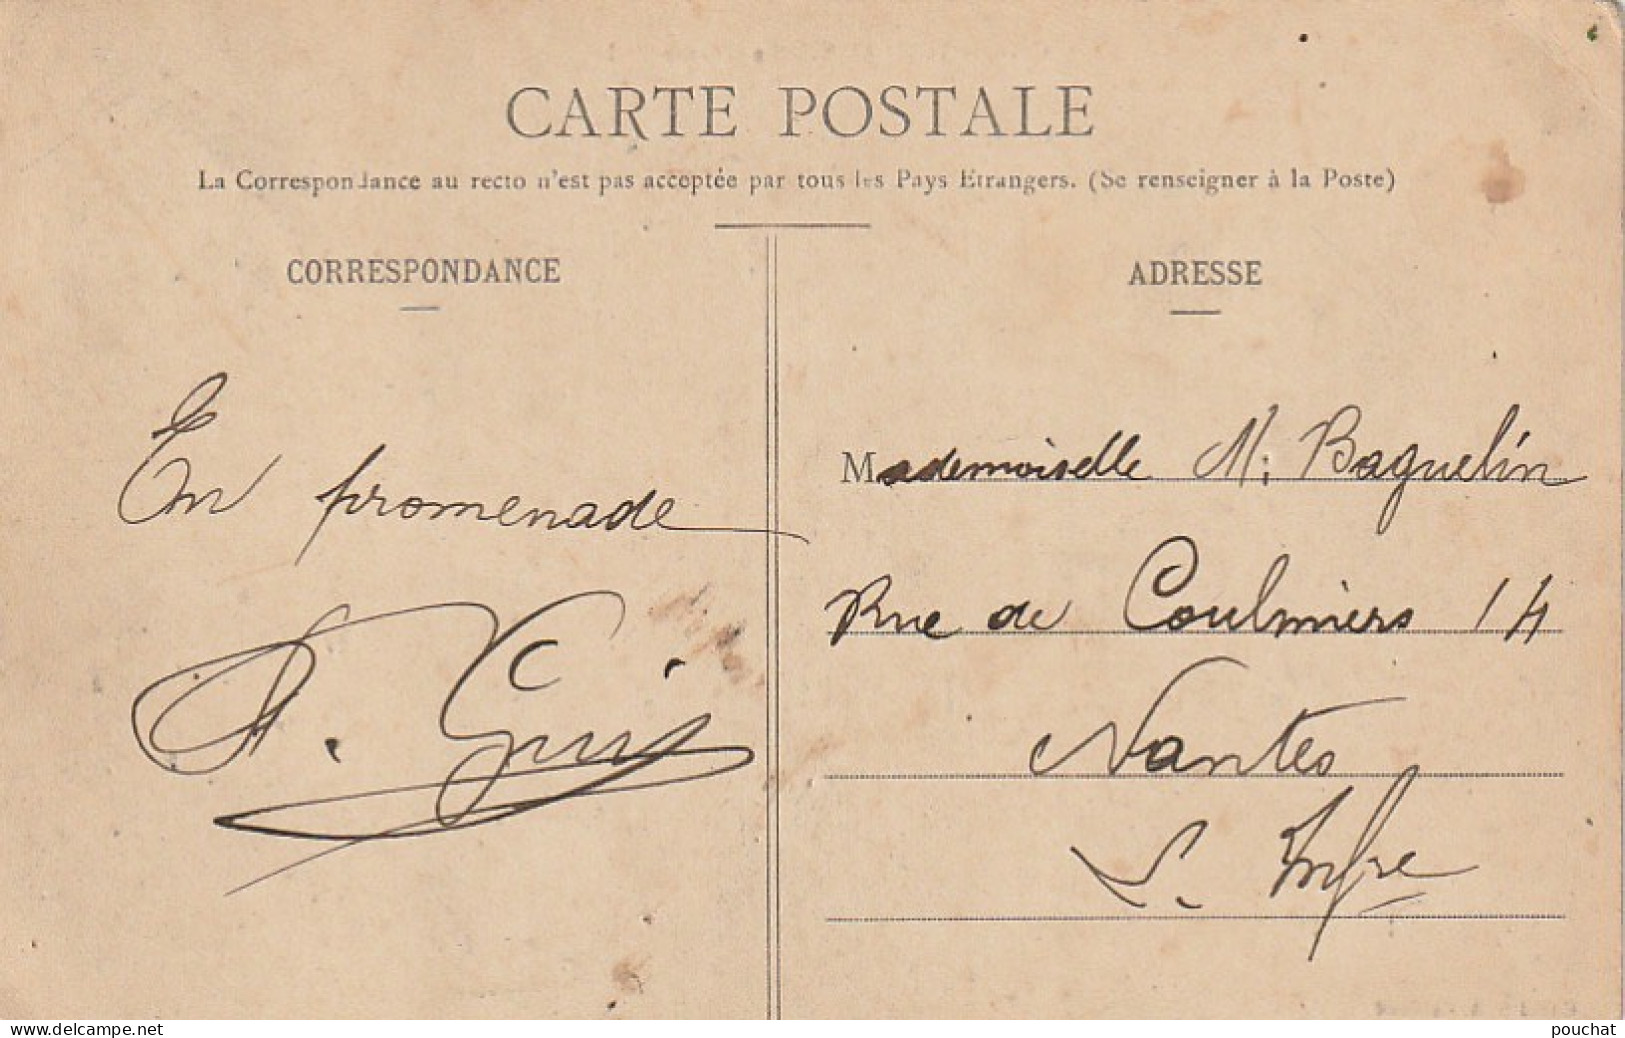 CARTE POSTALE
La Correspondance au recto n'est pas acceptée par tous les Pays Etrangers. (Se renseigner à la Poste)
CORRESPONDANCE
En promenade
ADRESSE
Mademoiselle M. Baguelin
Rue de Coulmiers 14
Nantes
L. Infre
www.delcampe.net
pouchat